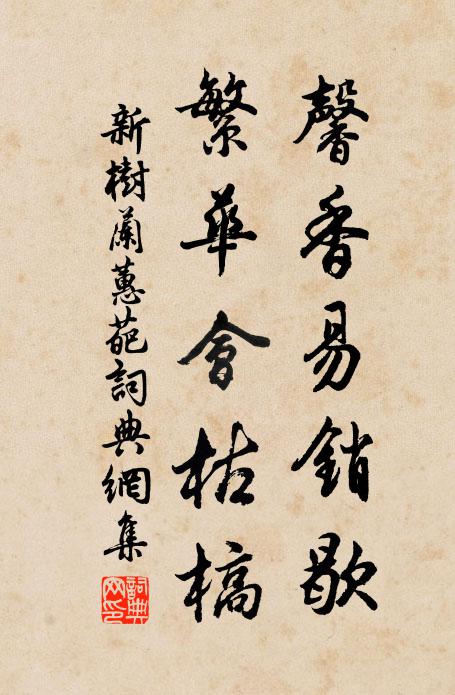 馨香易銷歇
繁華會枯槁
新樹蘭蕙葩詞典網集
詞典網印